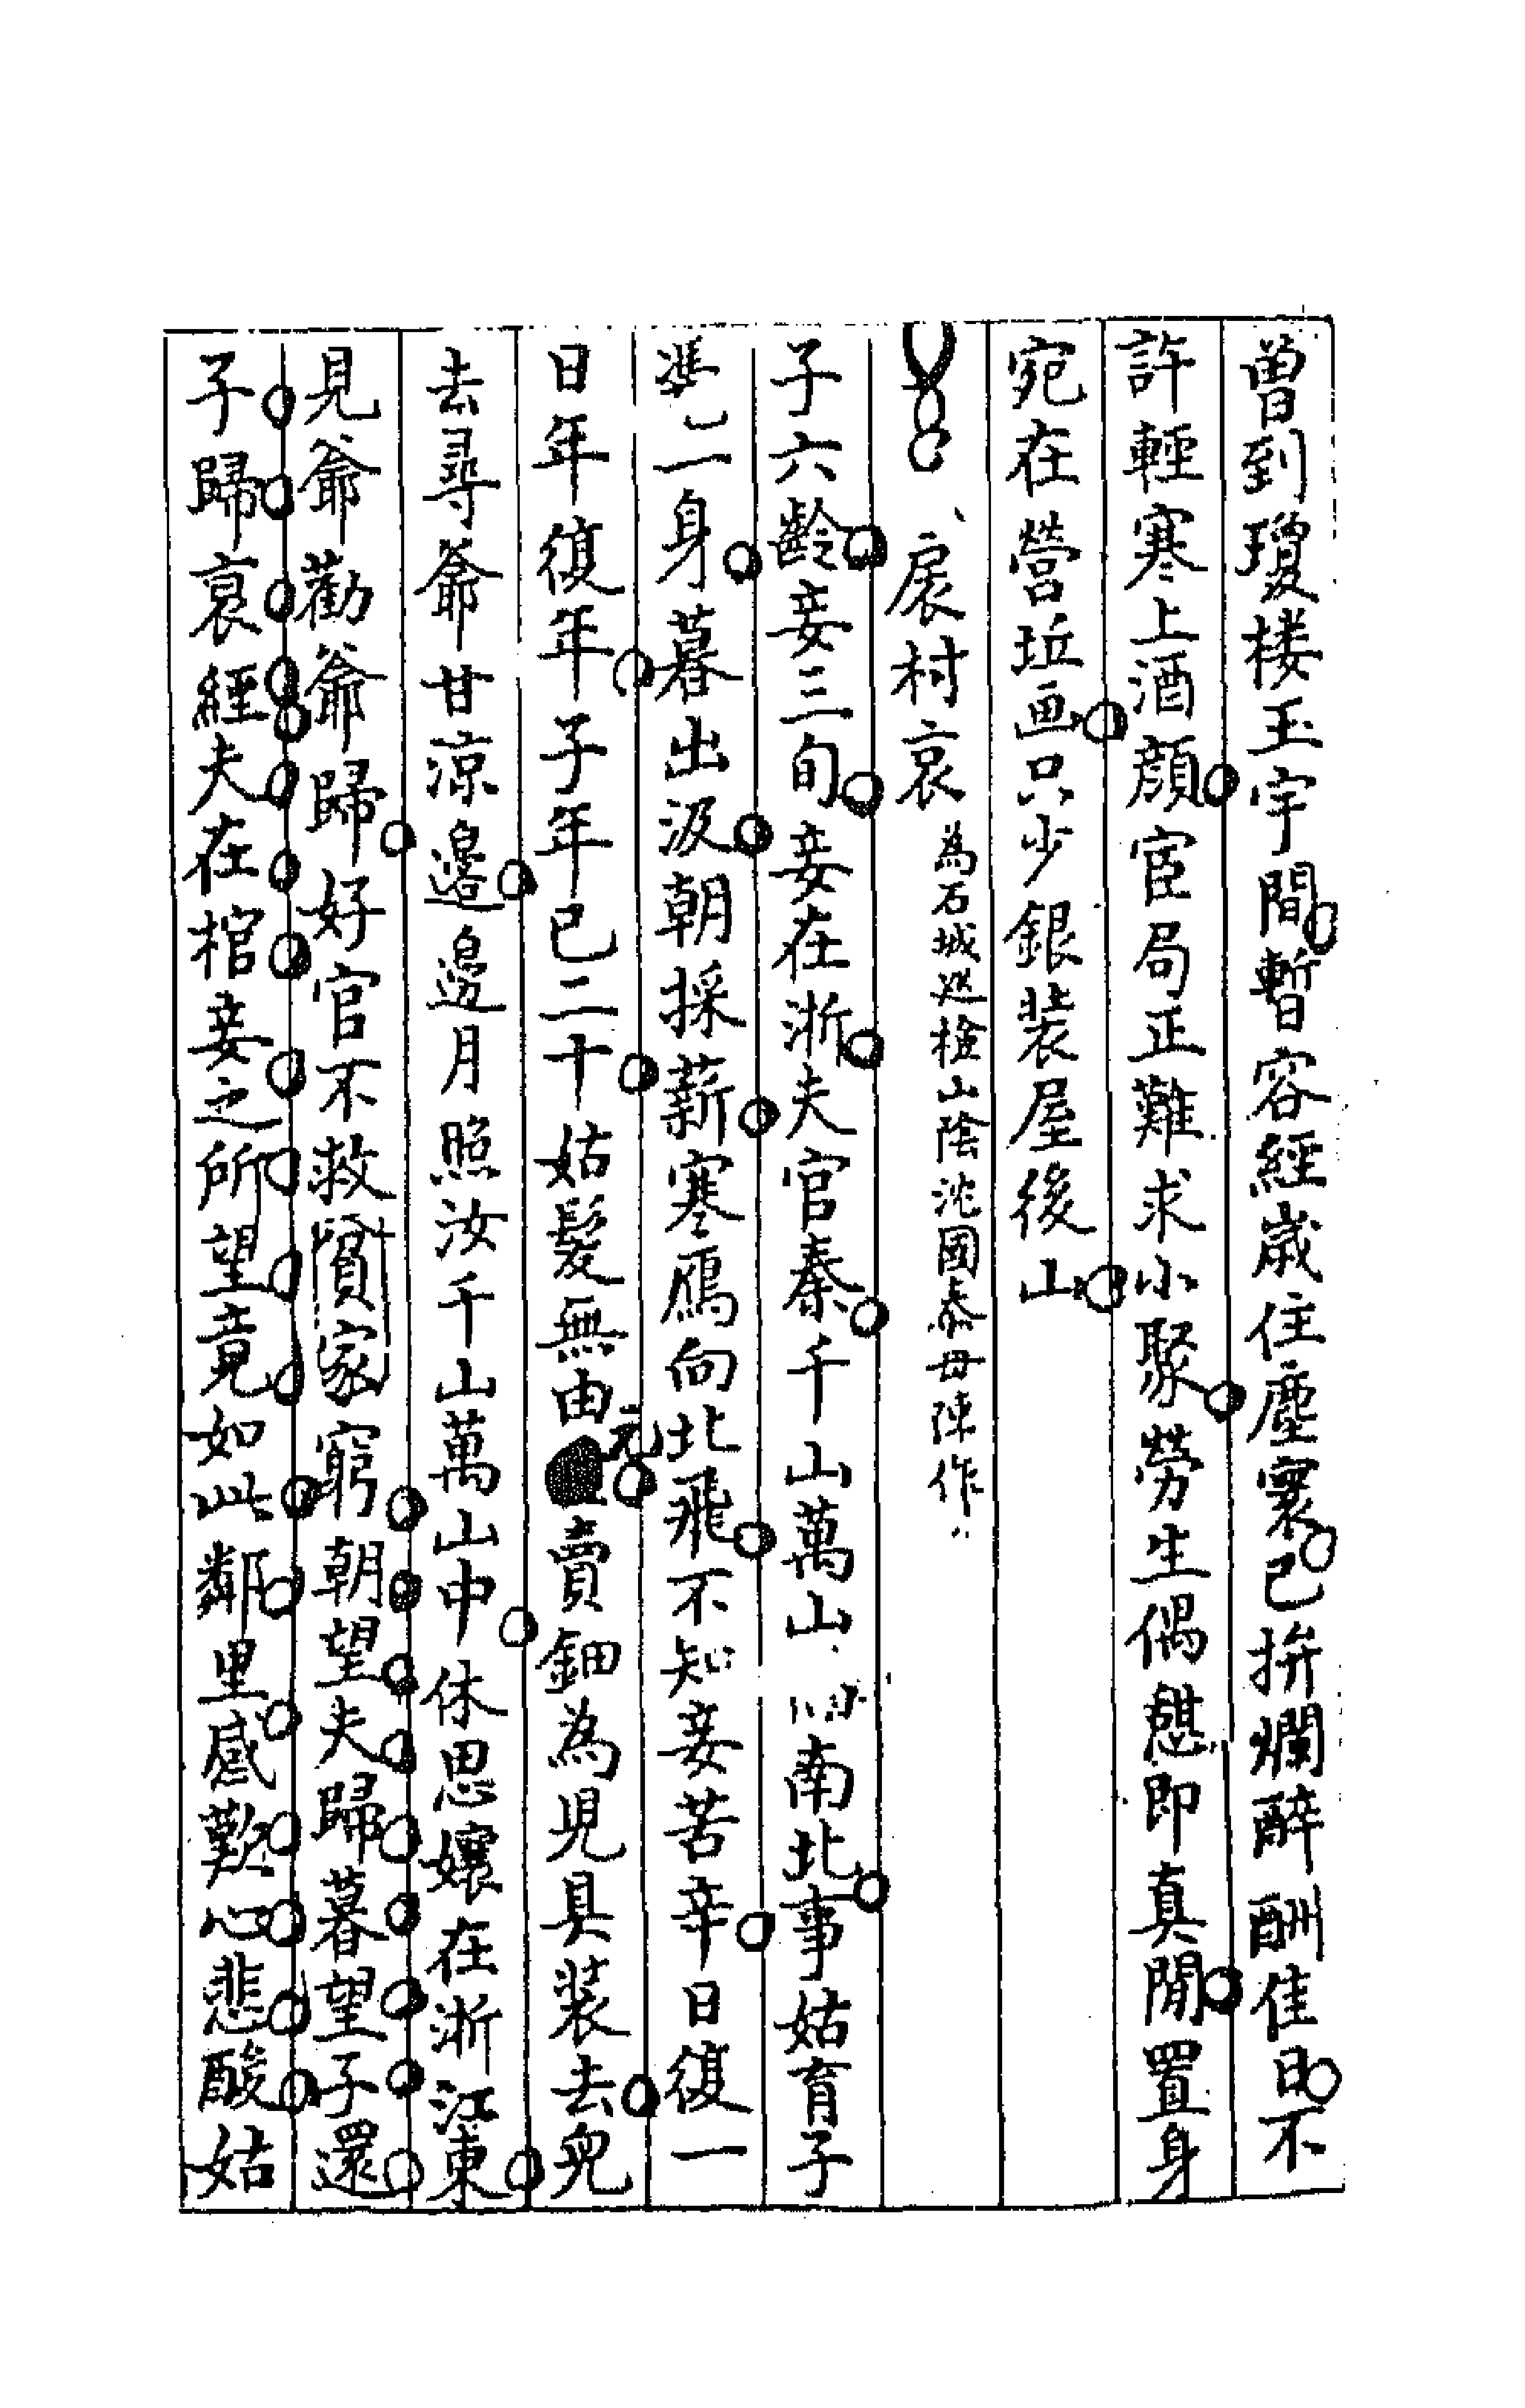 曽到瓊楼玉宇間暫容經歲住塵寰已拚爛醉酬佳日不
許輕寒上酒顔宦局正難求小聚勞生偶憇即真閒置身
宛在營坵画只少銀裝屋後山
扆村哀為石城巡檢山陰沈國泰母陳作
子六齡妾三旬妾在浙夫官秦千山萬山南北事姑育子
二身暮出汲朝採薪寒鴈向北飛不知妾苦辛日復一
日年復年子年已二十姑髮無由元賣鈿為児具裝去兒
去尋爺甘凉邊邊月照汝千山萬山中休思孃在浙江東
見爺勸爺歸好官不救貧家窮朝望夫歸暮望子還
子歸衰絰夫在棺妾之所望竟如此鄰里感歎心悲酸姑